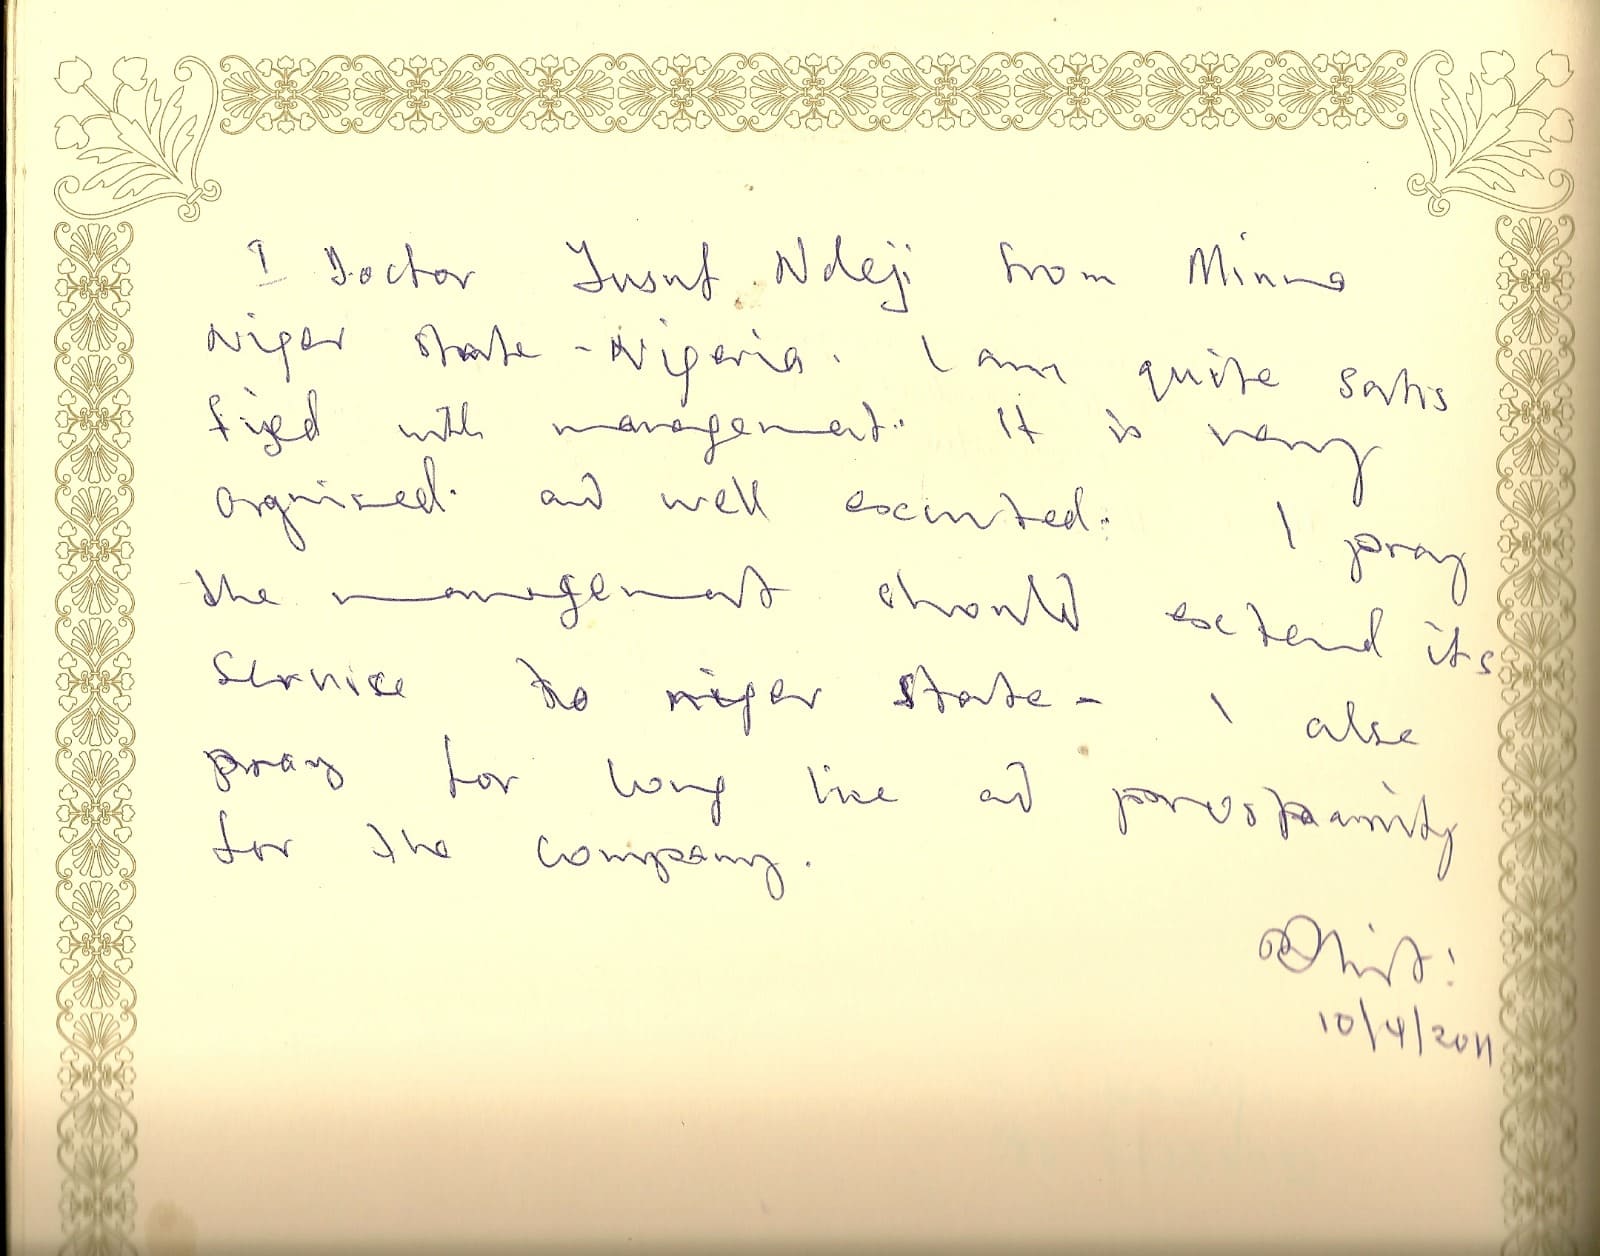 I Doctor Yusuf Ndeji from Minna
Niger state - Nigeria. I am quite satis
fied with management. It is very
orgnised. and well excuted. I pray
the management should extend its
service to niger state - I also
pray for long live ad prosparity
for the company.
10/4/2011